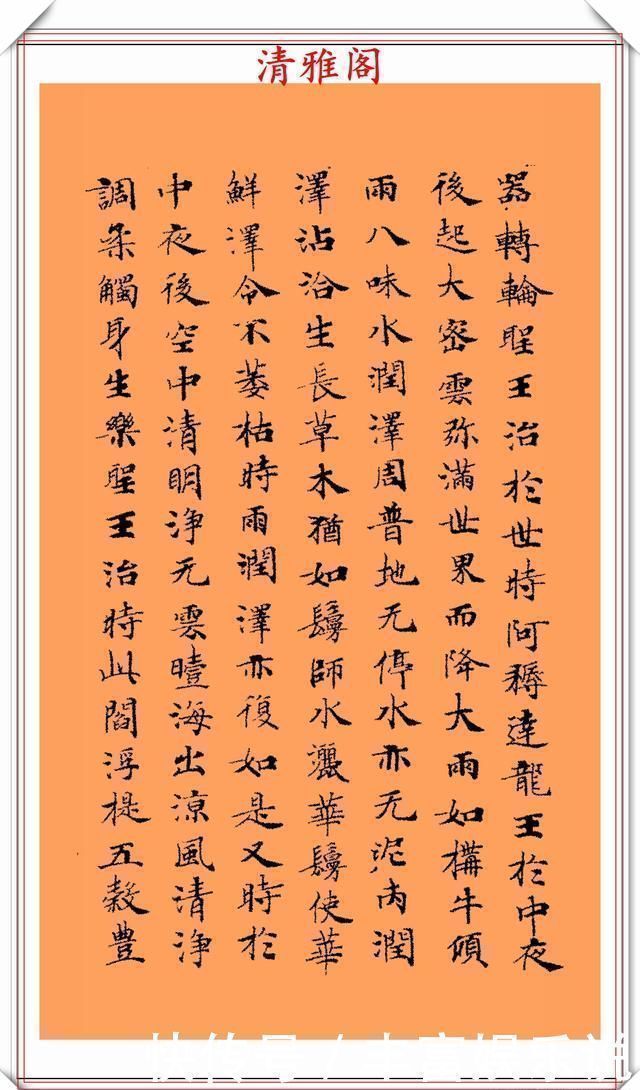 清雅阁
器轉輪聖王治於世時阿耨達龍王於中夜
後起大密雲弥滿世界而降大雨如構牛頃
雨八味水潤澤周普地无停水亦无泥丙潤
澤沾洽生長草木猶如鬘師水灑華鬘使華
鮮澤令不萎枯時雨潤澤亦復如是又時於
中夜後空中清明浄无雲曀海出涼風清浄
調柔觸身生樂聖王治時此閻浮提五穀豊
快传号 /